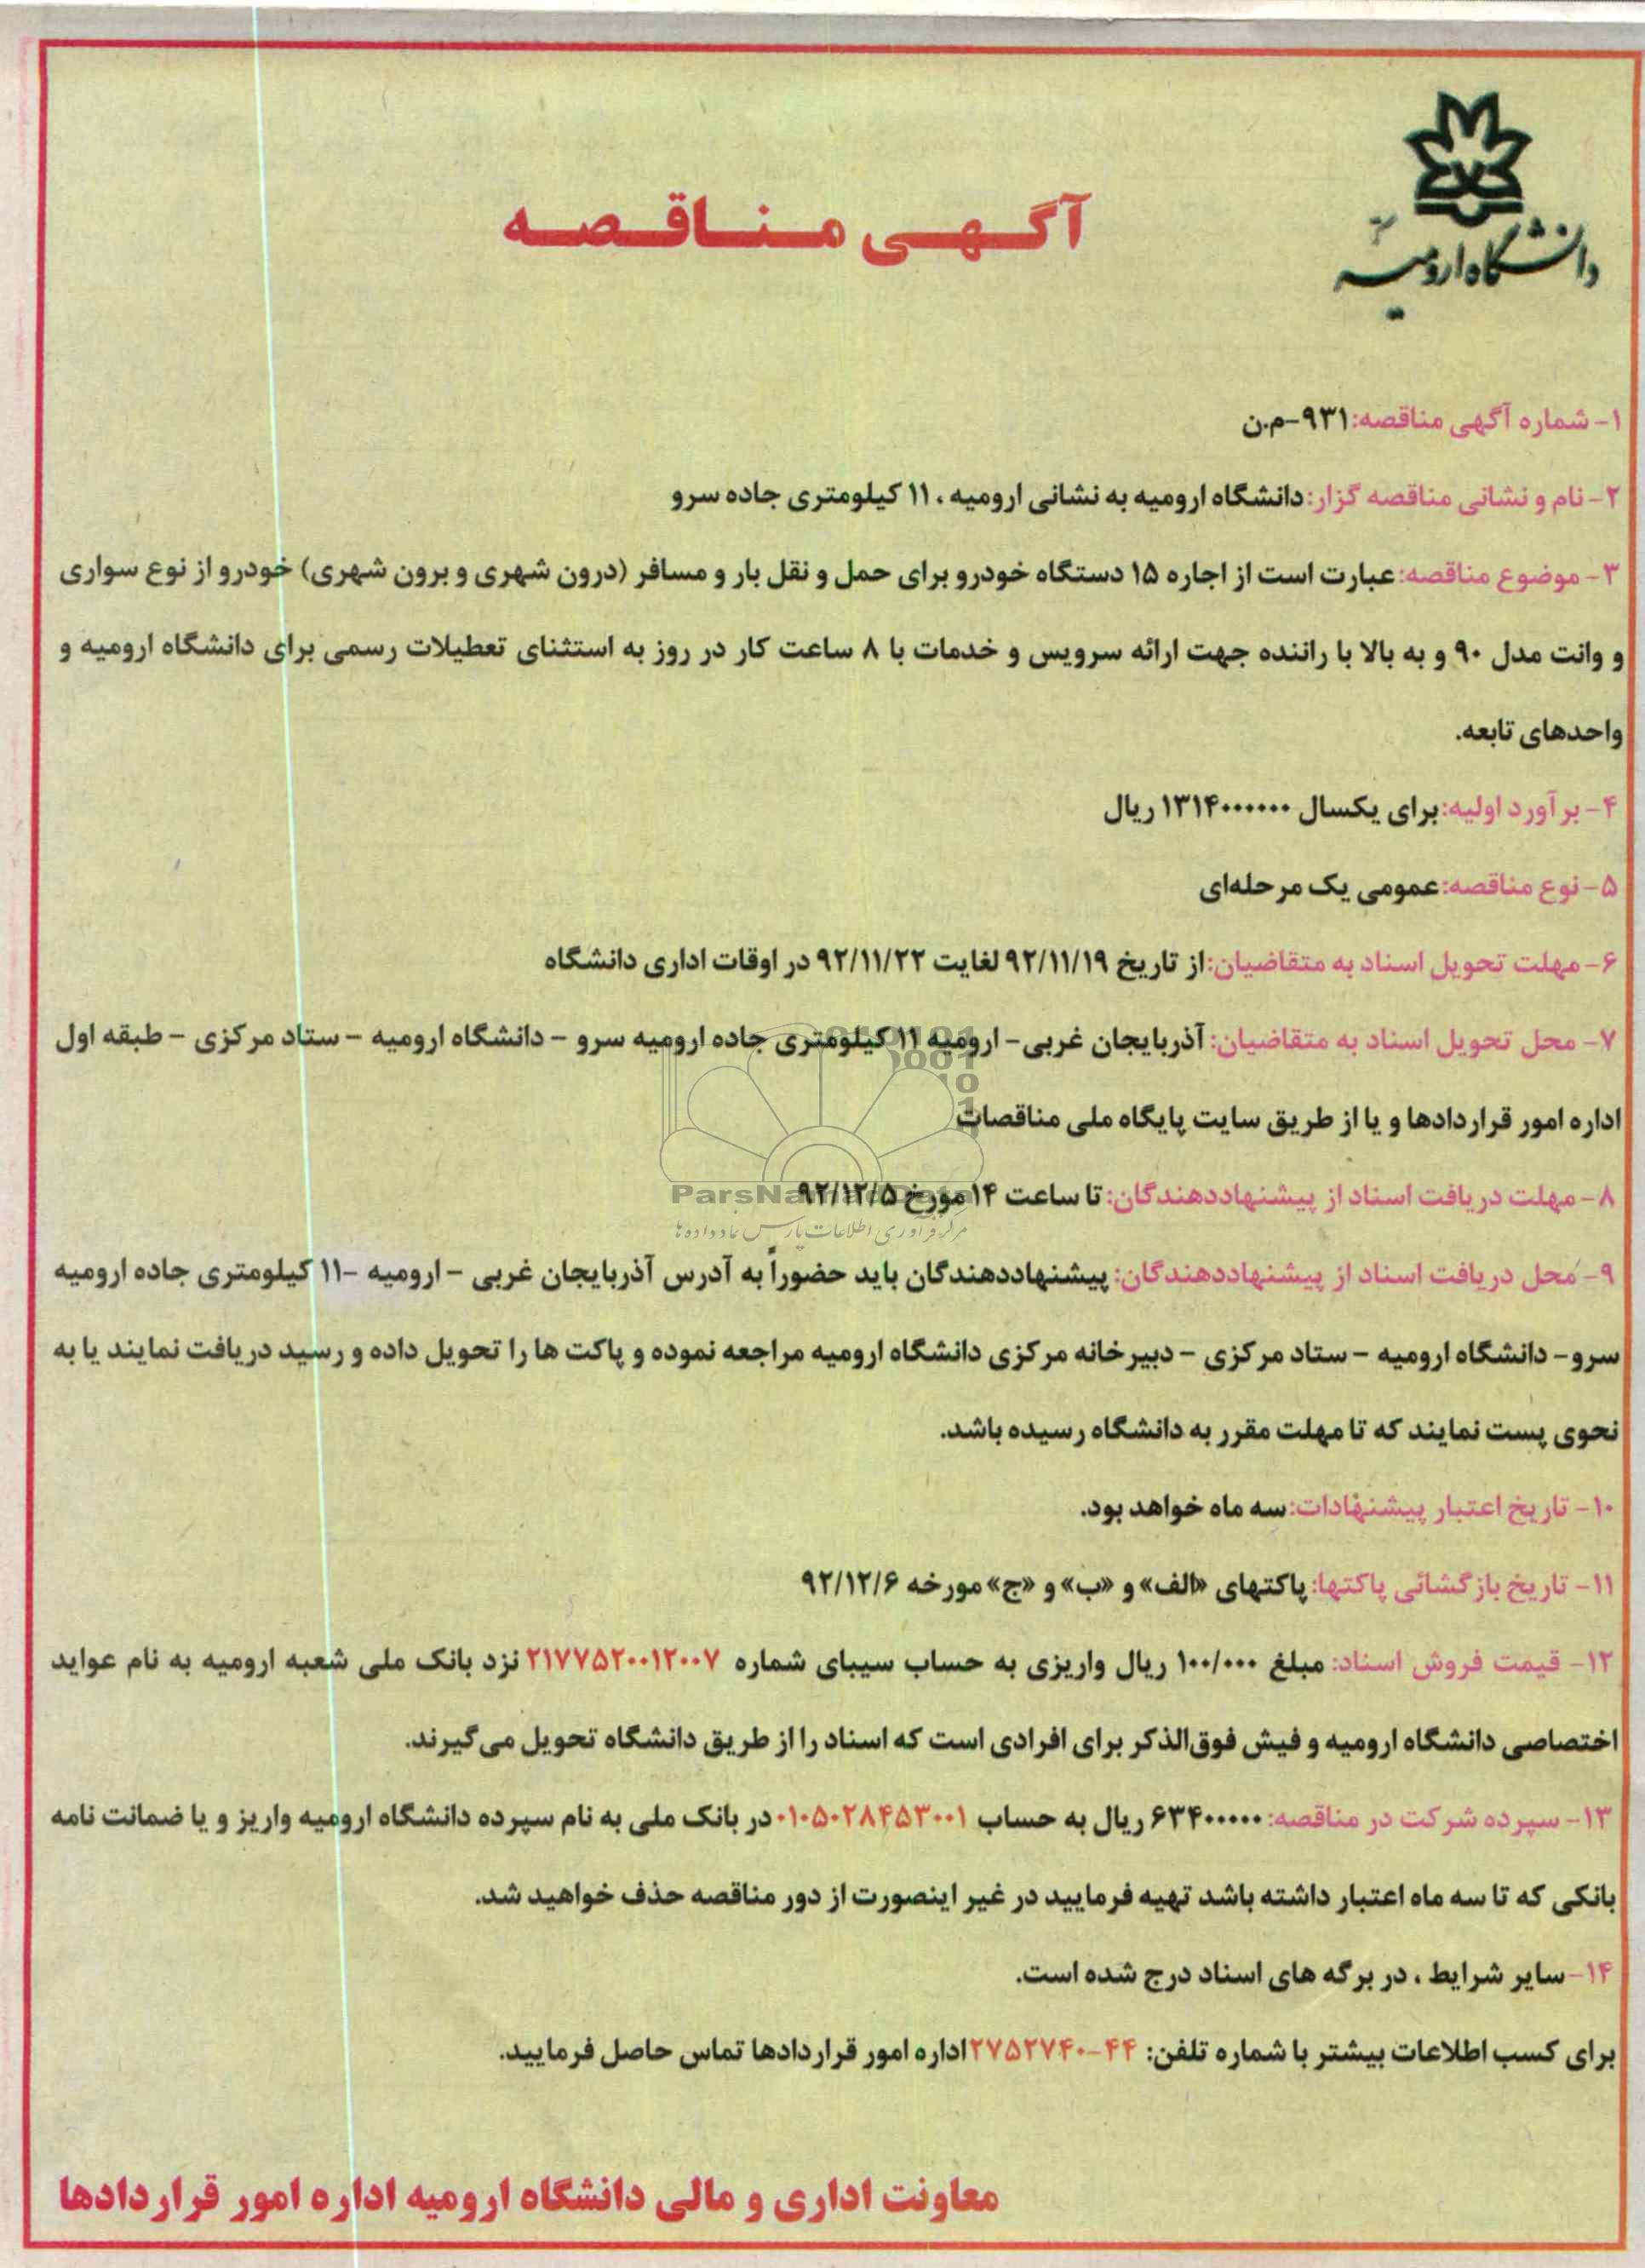 دانشگاه ارومیه
آگهی مناقصه
۱- شماره آگهی مناقصه:۹۳۱-م.ن
۲- نام و نشانی مناقصه گزار:دانشگاه ارومیه به نشانی ارومیه ، ۱۱ کیلومتری جاده سرو
۳- موضوع مناقصه:عبارت است از اجاره ۱۵ دستگاه خودرو برای حمل و نقل بار و مسافر (درون شهری و برون شهری) خودرو از نوع سواری
و وانت مدل ۹۰ و به بالا با راننده جهت ارائه سرویس و خدمات با ۸ ساعت کار در روز به استثنای تعطیلات رسمی برای دانشگاه ارومیه و
واحدهای تابعه.
۴- بر آورد اولیه:برای یکسال ۱۳۱۴۰۰۰۰۰۰ ریال
۵- نوع مناقصه:عمومی یک مرحله‌ای
۶- مهلت تحویل اسناد به متقاضیان:از تاریخ ۹۲/۱۱/۱۹ لغایت ۹۲/۱۱/۲۲ در اوقات اداری دانشگاه
۷- محل تحویل اسناد به متقاضیان: آذربایجان غربی- ارومیه ۱۱ کیلومتری جاده ارومیه سرو - دانشگاه ارومیه - ستاد مرکزی - طبقه اول
اداره امور قراردادها و یا از طریق سایت پایگاه ملی مناقصات
۸- مهلت دریافت اسناد از پیشنهاددهندگان: تا ساعت ۱۴ مورخ ۹۲/۱۲/۵
ParsNamadData
مرکز فرآوری اطلاعات پارس نماد داده ها
۹- محل دریافت اسناد از پیشنهاددهندگان: پیشنهاددهندگان باید حضوراً به آدرس آذربایجان غربی - ارومیه -۱۱ کیلومتری جاده ارومیه
سرو- دانشگاه ارومیه - ستاد مرکزی - دبیرخانه مرکزی دانشگاه ارومیه مراجعه نموده و پاکت ها را تحویل داده و رسید دریافت نمایند یا به
نحوی پست نمایند که تا مهلت مقرر به دانشگاه رسیده باشد.
۱۰- تاریخ اعتبار پیشنهادات:سه ماه خواهد بود.
۱۱- تاریخ بازگشائی پاکتها: پاکتهای «الف» و «ب» و «ج» مورخه ۹۲/۱۲/۶
۱۲- قیمت فروش اسناد: مبلغ ۱۰۰/۰۰۰ ریال واریزی به حساب سیبای شماره ۲۱۷۷۵۲۰۰۱۲۰۰۷ نزد بانک ملی شعبه ارومیه به نام عواید
اختصاصی دانشگاه ارومیه و فیش فوق‌الذکر برای افرادی است که اسناد را از طریق دانشگاه تحویل می‌گیرند.
۱۳- سپرده شرکت در مناقصه: ۶۳۴۰۰۰۰۰ ریال به حساب ۰۱۰۵۰۲۸۴۵۳۰۰۱ در بانک ملی به نام سپرده دانشگاه ارومیه واریز و یا ضمانت نامه
بانکی که تا سه ماه اعتبار داشته باشد تهیه فرمایید در غیر اینصورت از دور مناقصه حذف خواهید شد.
۱۴-سایر شرایط ، در برگه های اسناد درج شده است.
برای کسب اطلاعات بیشتر با شماره تلفن: ۴۴-۲۷۵۲۷۴۰ اداره امور قراردادها تماس حاصل فرمایید.
معاونت اداری و مالی دانشگاه ارومیه اداره امور قراردادها